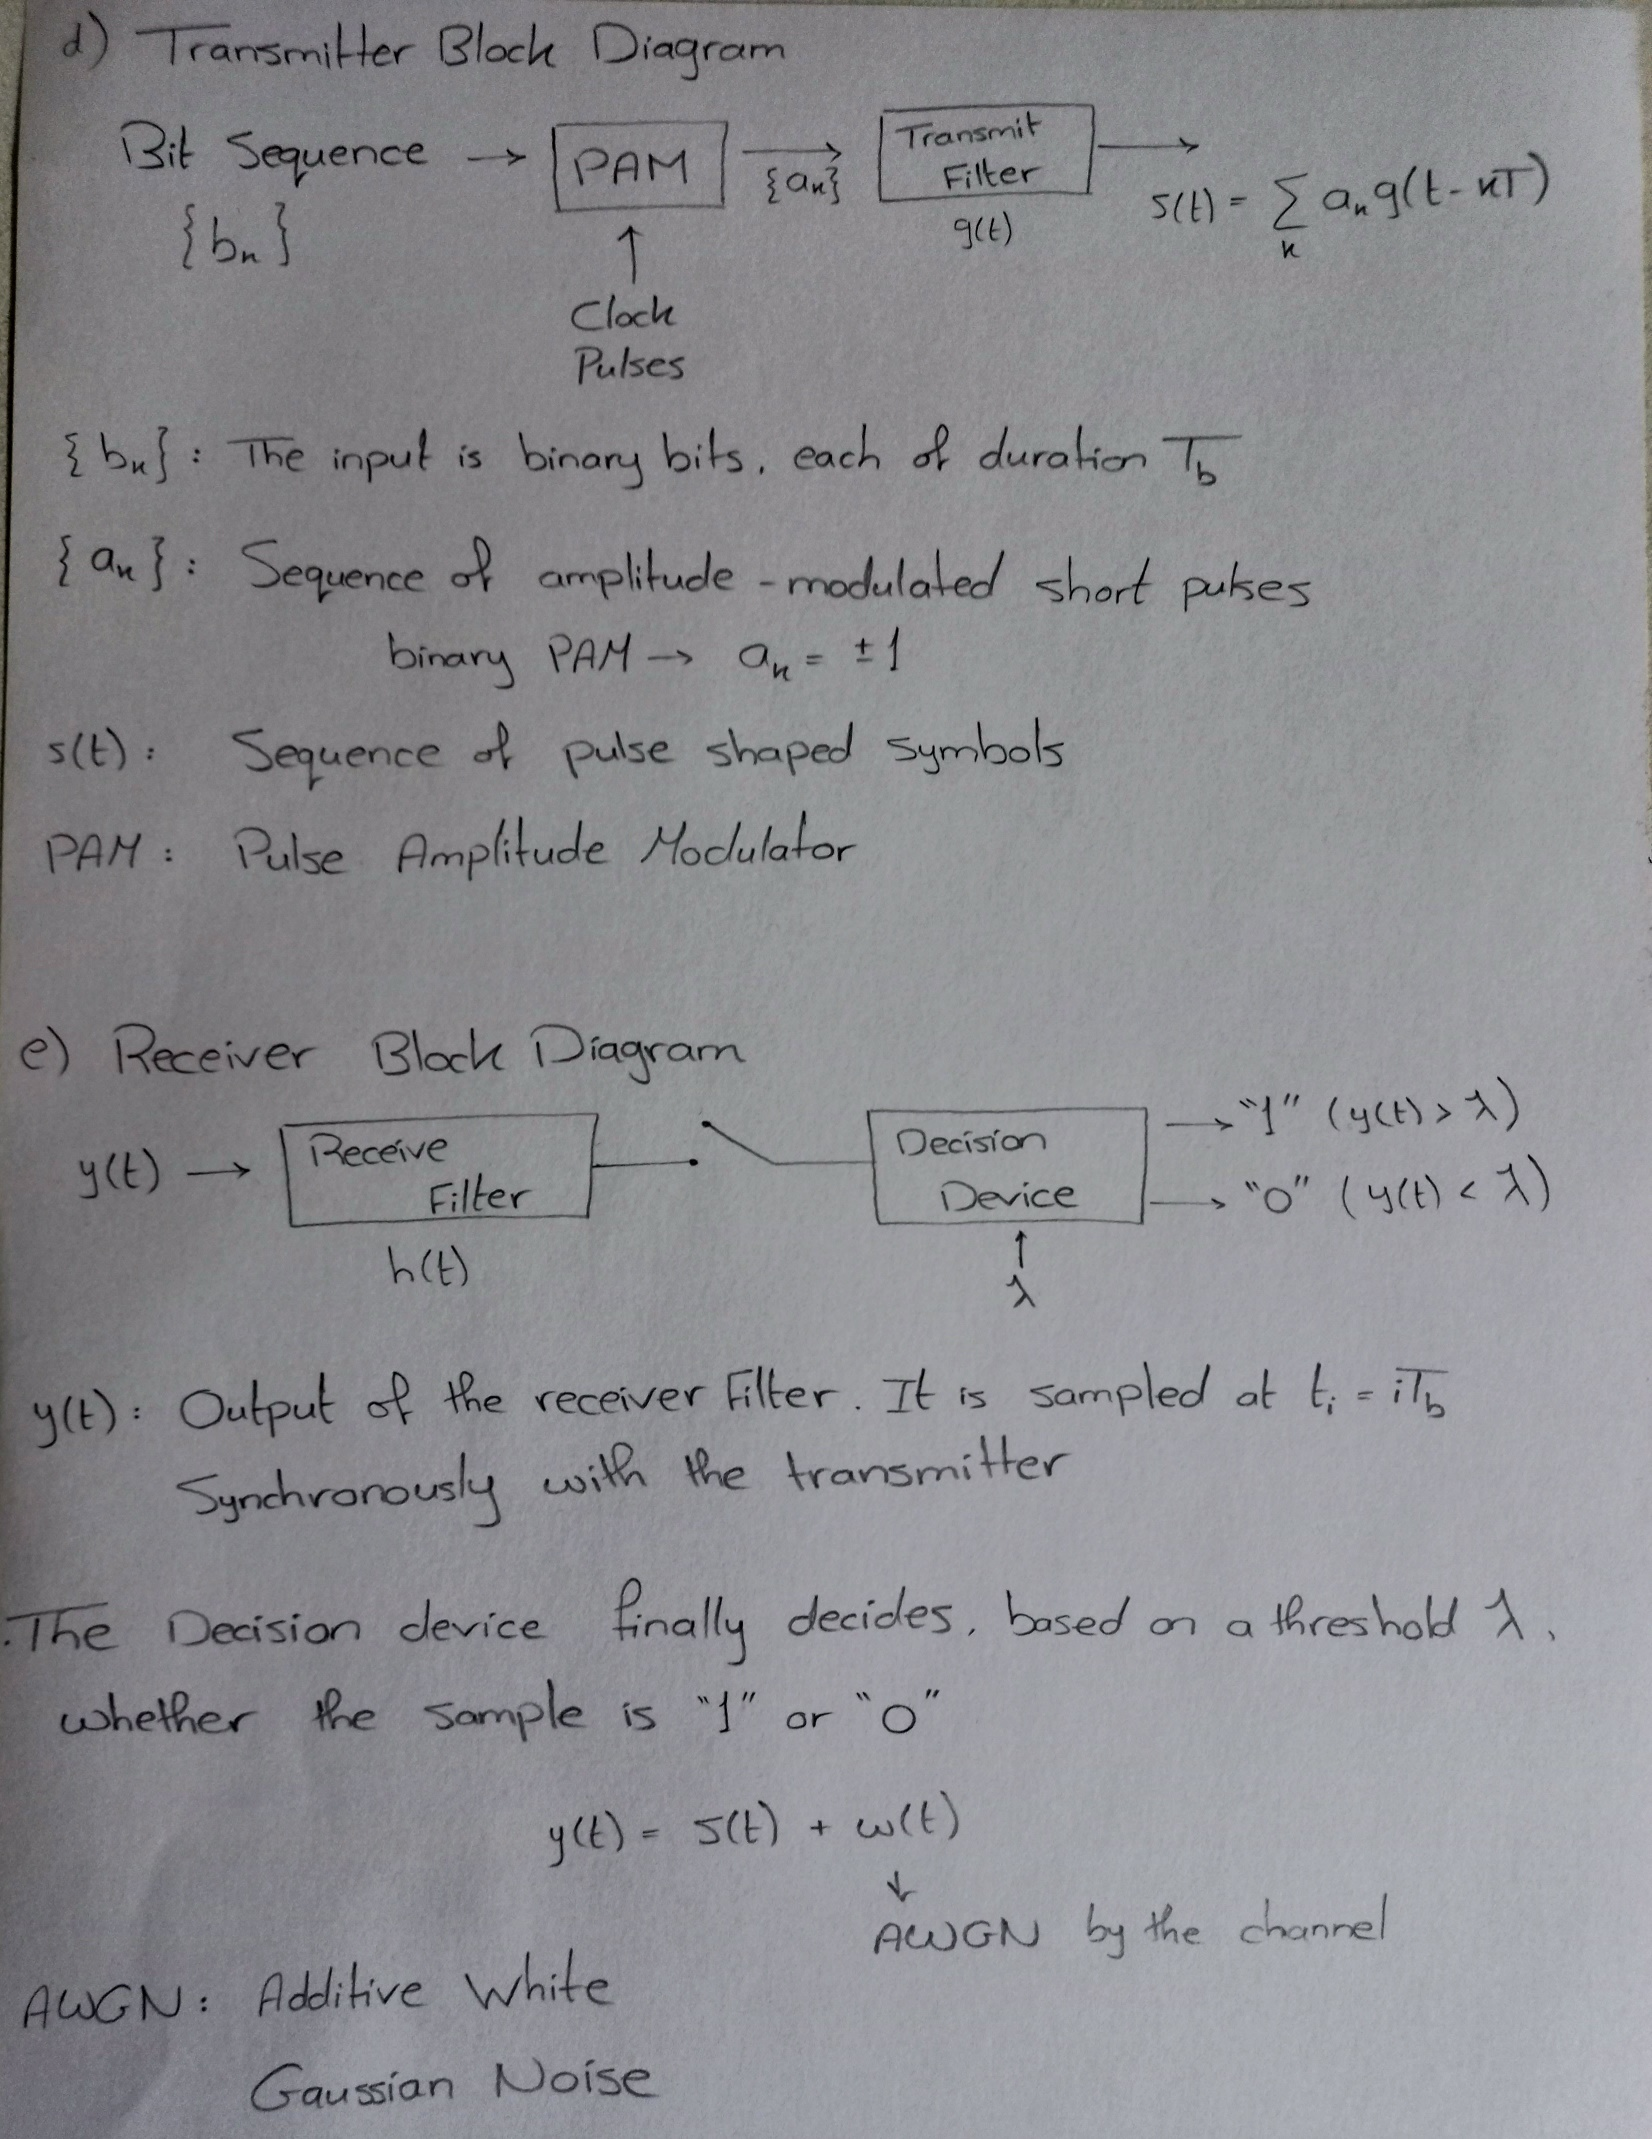 d) Transmitter Block Diagram
Bit Sequence → PAM → Transmit Filter →
{bₖ}
{aₖ}
g(t)
s(t) = Σₖ aₖ g(t - kT)
↑
Clock
Pulses
{bₖ} : The input is binary bits, each of duration T_b
{aₖ} : Sequence of amplitude - modulated short pulses
binary PAM → aₖ = ±1
s(t) : Sequence of pulse shaped symbols
PAM : Pulse Amplitude Modulator
e) Receiver Block Diagram
y(t) → Receive Filter
h(t)
Decision Device
→ "1" (y(t) > λ)
→ "0" (y(t) < λ)
↑
λ
y(t) : Output of the receiver Filter. It is sampled at tᵢ = iT_b
Synchronously with the transmitter
.The Decision device finally decides, based on a threshold λ,
whether the sample is "1" or "0"
y(t) = s(t) + w(t)
↓
AWGN by the channel
AWGN : Additive White
Gaussian Noise